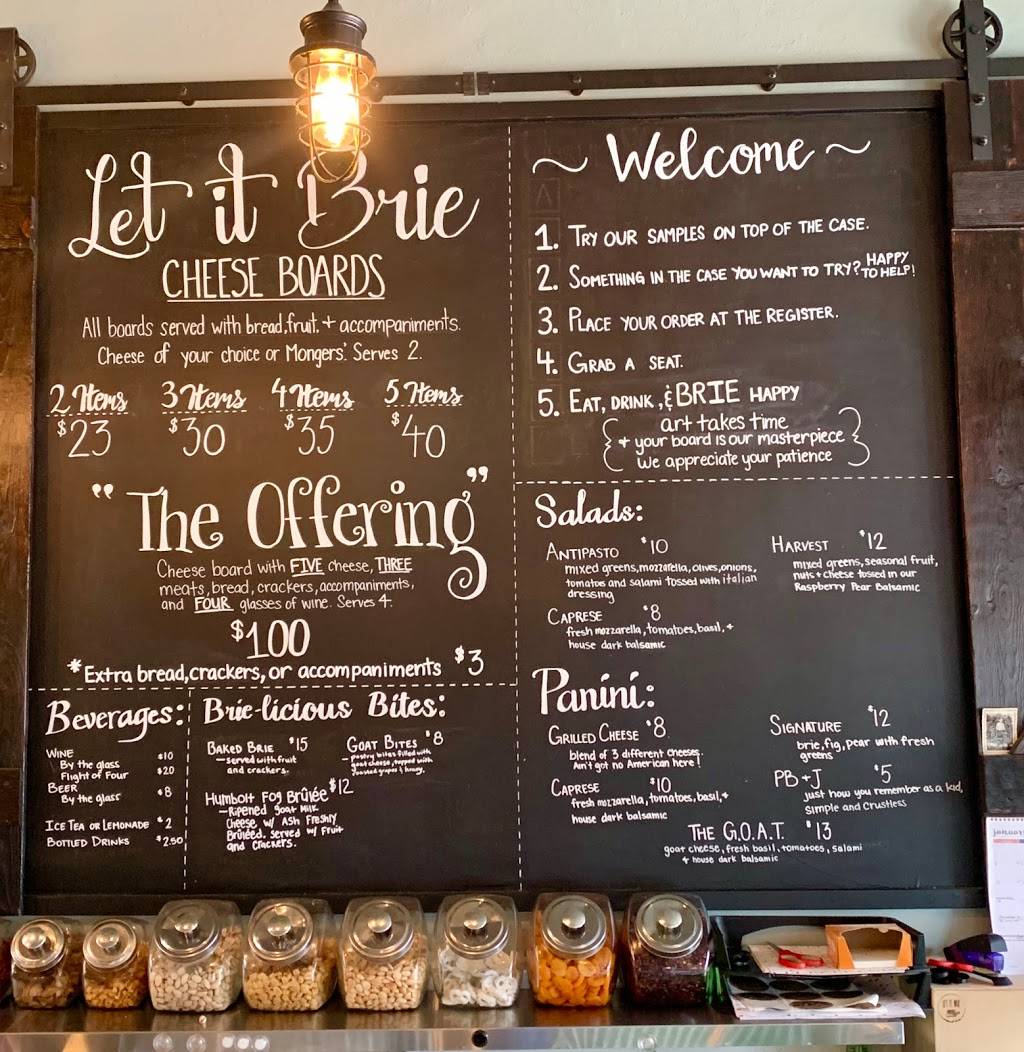 Let it Brie
CHEESE BOARDS
All boards served with bread, fruit, + accompaniments.
Cheese of your choice or Mongers'. Serves 2.
2 Items 3 Items 4 Items 5 Items
$23 $30 $35 $40
"The Offering"
Cheese board with FIVE cheese, THREE
meats, bread, crackers, accompaniments,
and FOUR glasses of wine. Serves 4.
$100
*Extra bread, crackers, or accompaniments $3
Beverages:
WINE
By the glass $10
Flight of Four $20
BEER
By the glass $8
ICE TEA OR LEMONADE $2
BOTTLED DRINKS $2.50
Brie-licious Bites:
BAKED BRIE $15
-served with fruit
and crackers.
GOAT BITES $8
-pastry bites filled with
goat cheese, topped with
roasted grapes & honey.
HUMBOLT FOG BRÛLÉE $12
-Ripened Goat Milk
Cheese w/ Ash Freshly
Brûléed. Served w/ Fruit
and Crackers.
~ Welcome ~
1. TRY OUR SAMPLES ON TOP OF THE CASE.
2. SOMETHING IN THE CASE YOU WANT TO TRY? HAPPY TO HELP!
3. PLACE YOUR ORDER AT THE REGISTER.
4. GRAB A SEAT.
5. EAT, DRINK, & BRIE HAPPY
art takes time
+ your board is our masterpiece
we appreciate your patience
Salads:
ANTIPASTO $10
mixed greens, mozzarella, olives, onions,
tomatoes and salami tossed with italian
dressing
CAPRESE $8
fresh mozzarella, tomatoes, basil, +
house dark balsamic
HARVEST $12
mixed greens, seasonal fruit,
nuts + cheese tossed in our
Raspberry Pear Balsamic
Panini:
GRILLED CHEESE $8
blend of 3 different cheeses.
Ain't got no American here!
CAPRESE $10
fresh mozzarella, tomatoes, basil, +
house dark balsamic
SIGNATURE $12
brie, fig, pear with fresh
greens
PB+J $5
just how you remember as a kid,
simple and crustless
THE G.O.A.T. $13
goat cheese, fresh basil, tomatoes, salami
+ house dark balsamic
january